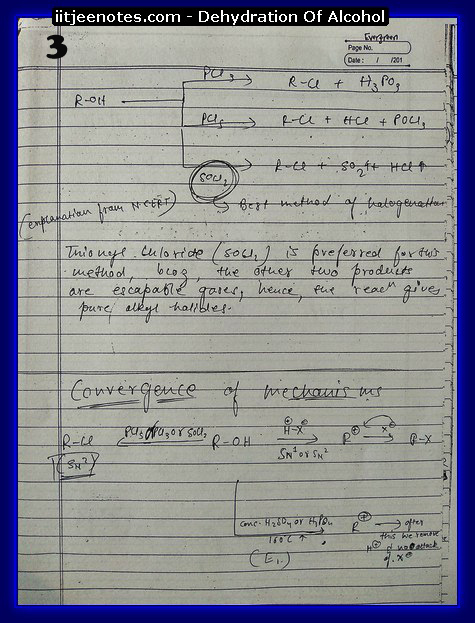 iitjeenotes.com - Dehydration Of Alcohol
3
Evergreen
Page No.
Date : / /201
PCl3 R-Cl + H3PO3
R-OH
PCl5 R-Cl + HCl + POCl3
SOCl2 R-Cl + SO2↑ + HCl↑
(explanation from NCERT) → Best method of halogenation
Thionyl chloride (SOCl2) is preferred for this
method, bcoz, the other two products
are escapable gases, hence, the reacⁿ gives
pure alkyl halides.
Convergence of mechanisms
R-Cl PCl5 PCl3 or SOCl2 R-OH H-X SN1 or SN2 R⊕ X⊖ R-X
(SN2)
conc. H2SO4 or H3PO4 R⊕ → after
160°C ↑ this we remove
H⊕ & no attack
(E1) of X⊖